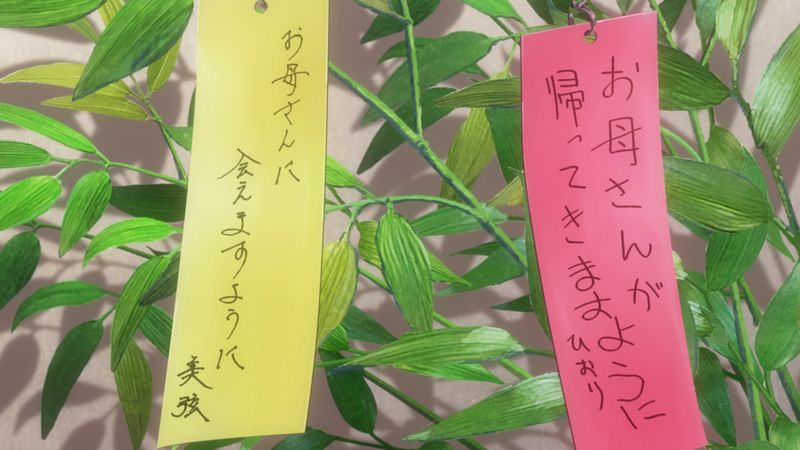 お母さんが
帰ってきますように
ひおり
お母さんに
会えますように
美弦